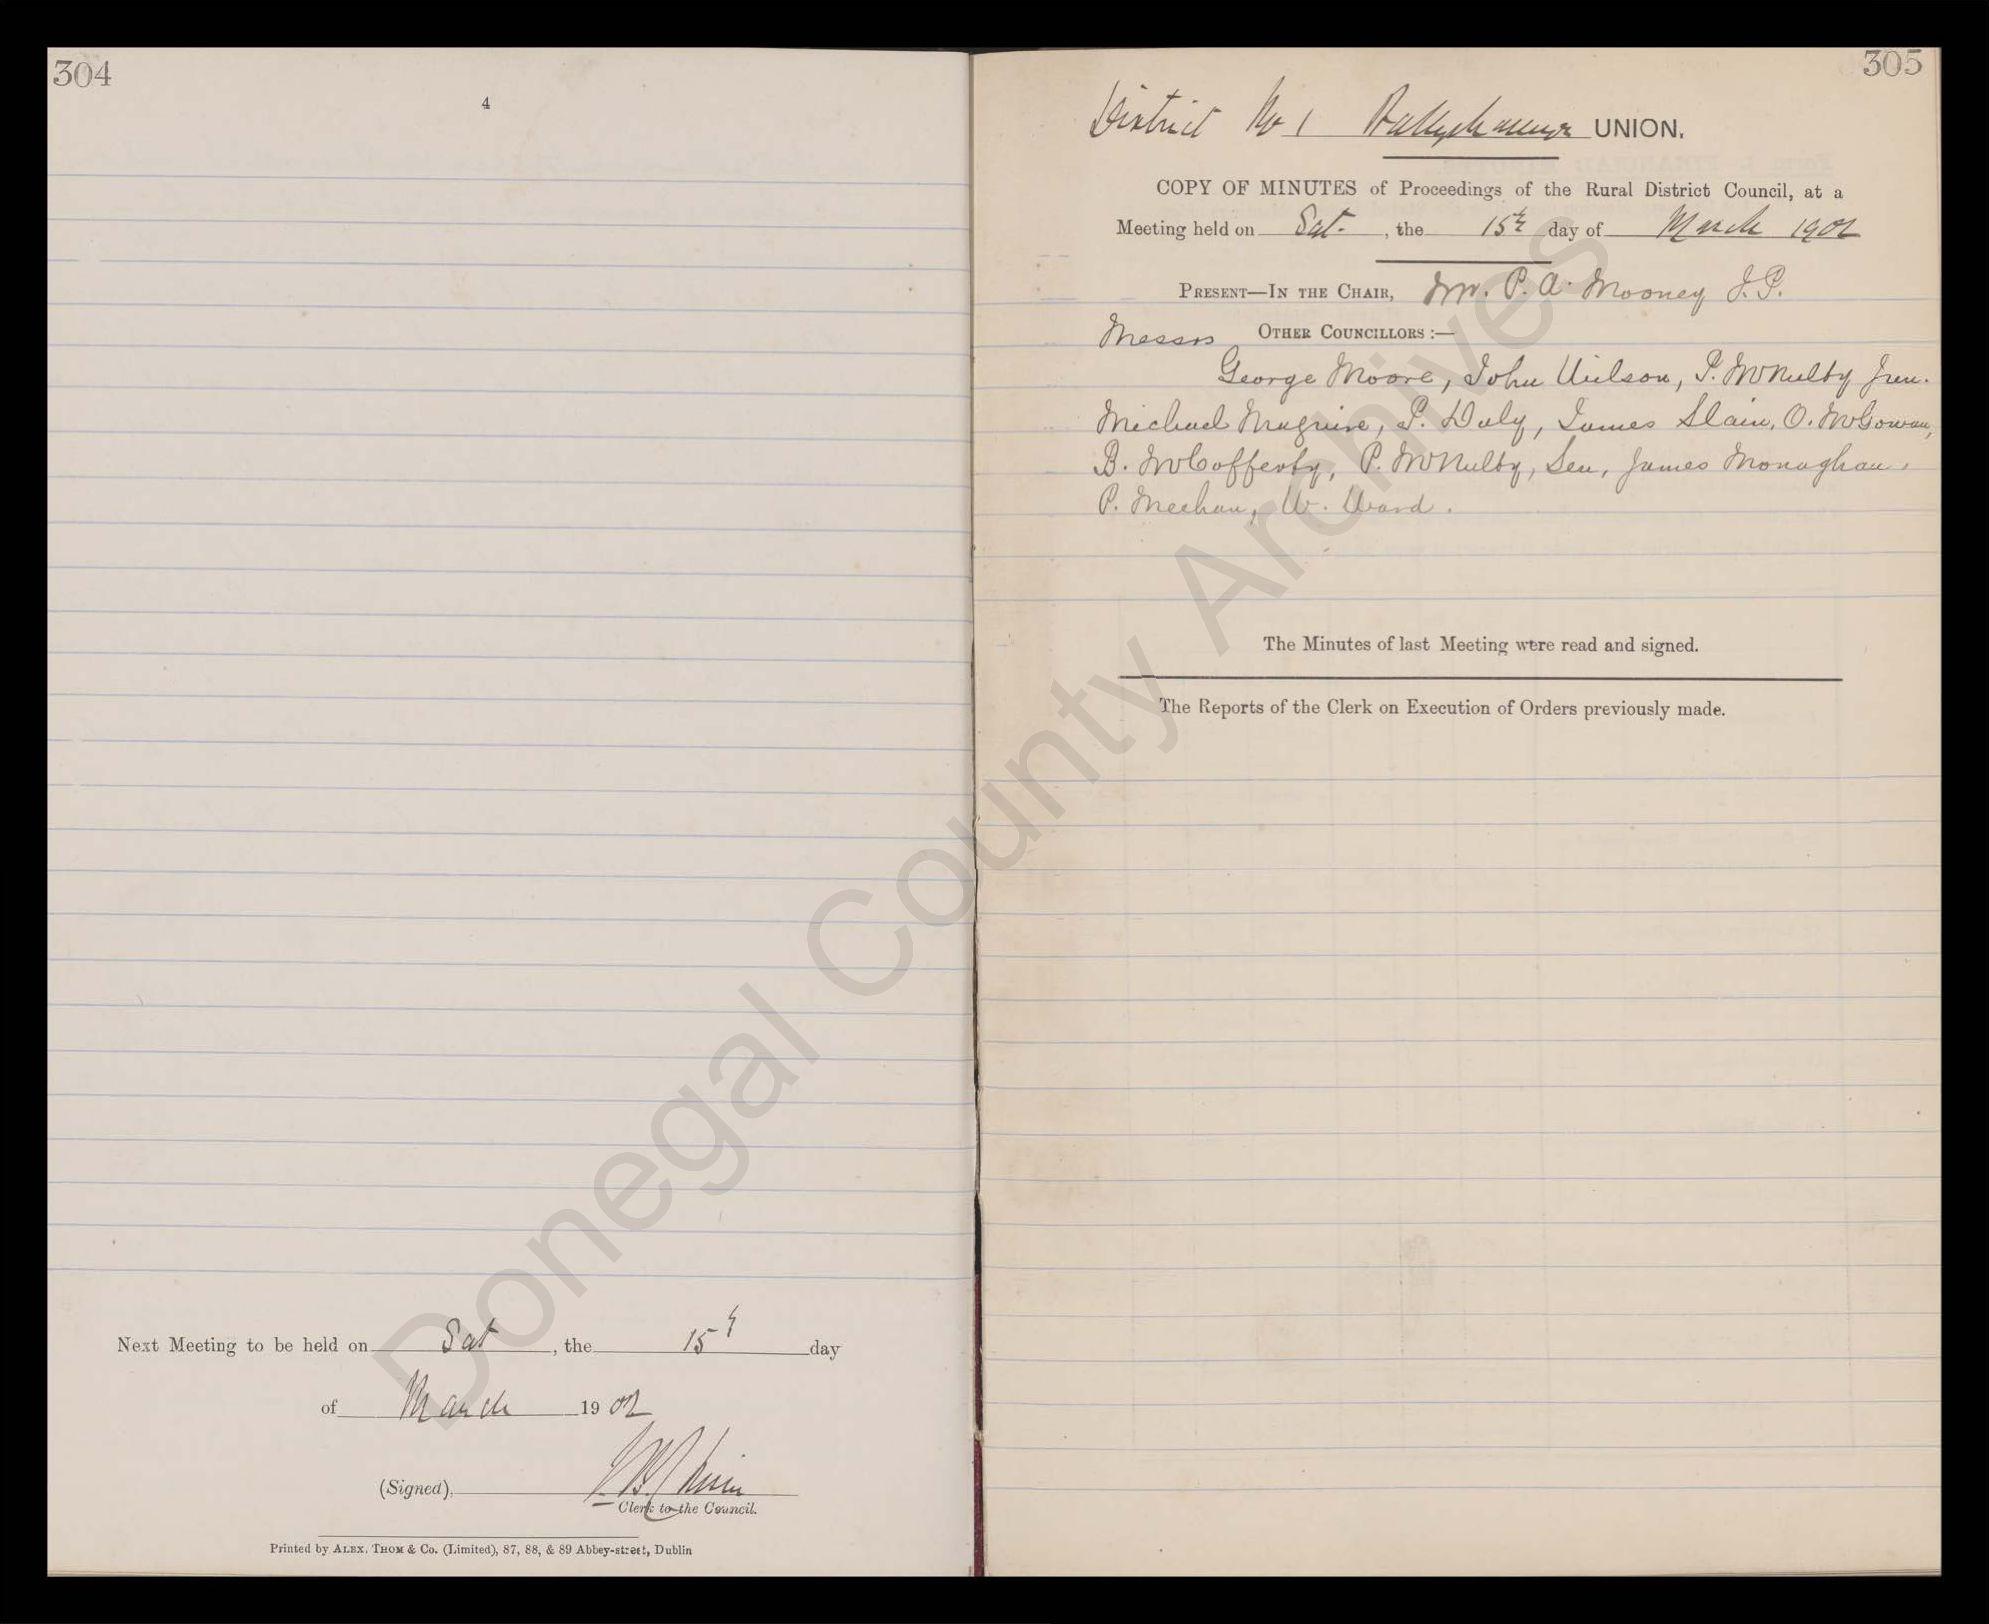 304
4
Next Meeting to be held on Sat, the 15th day
of March 1902
(Signed),
Clerk to the Council.
Printed by ALEX. THOM & Co. (Limited), 87, 88, & 89 Abbey-street, Dublin
305
District No 1 Ballyshannon UNION.
COPY OF MINUTES of Proceedings of the Rural District Council, at a
Meeting held on Sat., the 15th day of March 1902
PRESENT—IN THE CHAIR, Mr. P. A. Mooney J.P.
Messrs OTHER COUNCILLORS :—
George Moore, John Wilson, P. McNulty Jun.
Michael Maguire, P. Daly, James Slain, O. McGowan,
B. McCafferty, P. McNulty, Sen, James Monaghan,
P. Meehan, W. Ward.
The Minutes of last Meeting were read and signed.
The Reports of the Clerk on Execution of Orders previously made.
Donegal County Archives